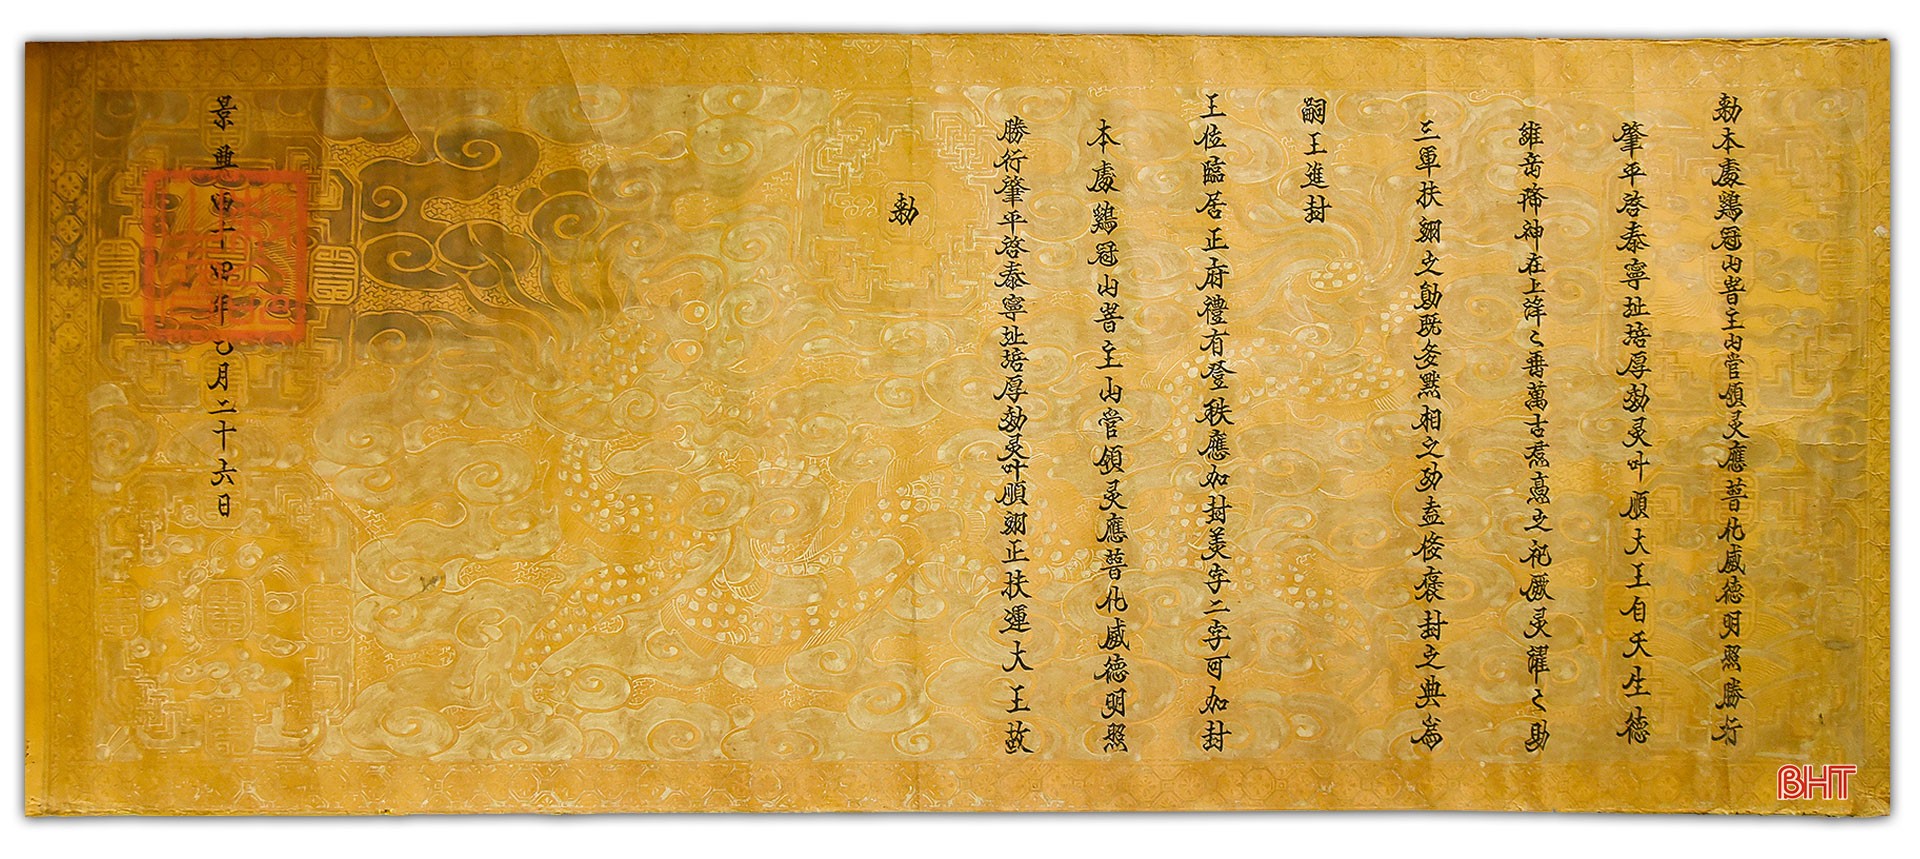 勅本處鷄冠山峕主山管領灵應普化威德明照勝行
肇平啓泰寧址培厚効灵叶順大王自天生德
維岳降神在上洋〻垂萬古焄蒿之祀厥灵濯〻助
三軍扶翊之勛既多黙相之功盍俊褒封之典爲
嗣王進封
王位臨居正府禮有登秩應加封美字二字可加封
本處鷄冠山峕主山管領灵應普化威德明照
勝行肇平啓泰寧址培厚効灵叶順翊正扶運大王故
勅
景興四十四年 月二十六日
BHT